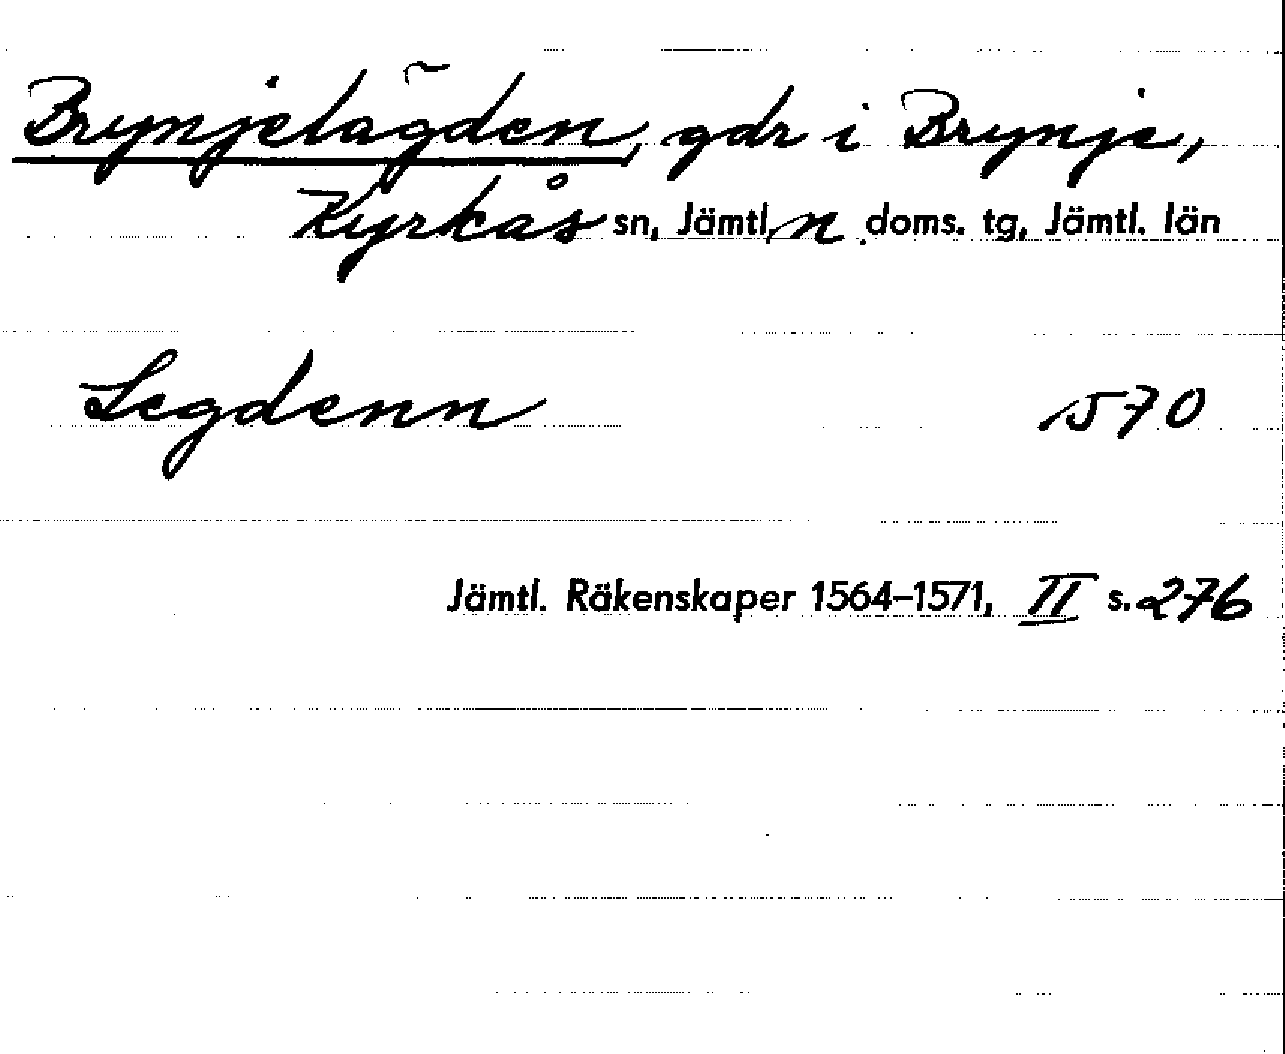 Brynjelägden, gdr i Brynje,
Kyrkås sn, Jämtl. n. doms. tg, Jämtl. län
Legdenn 1570
Jämtl. Räkenskaper 1564–1571, II s. 276